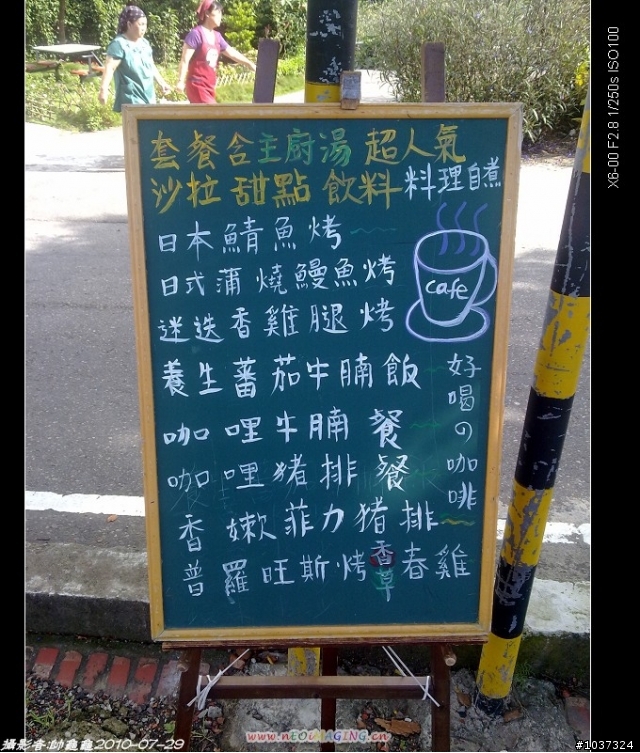 套餐含主廚湯 超人氣
沙拉 甜點 飲料 料理自煮
日本鯖魚烤
日式蒲燒鰻魚烤
迷迭香雞腿烤
cafe
養生蕃茄牛腩飯
咖哩牛腩餐
咖哩豬排餐
香嫰菲力豬排
普羅旺斯烤香草春雞
好喝の咖啡
X6-00 F2.8 1/250s ISO100
2010-07-29
www.neoimaging.cn
#1037324